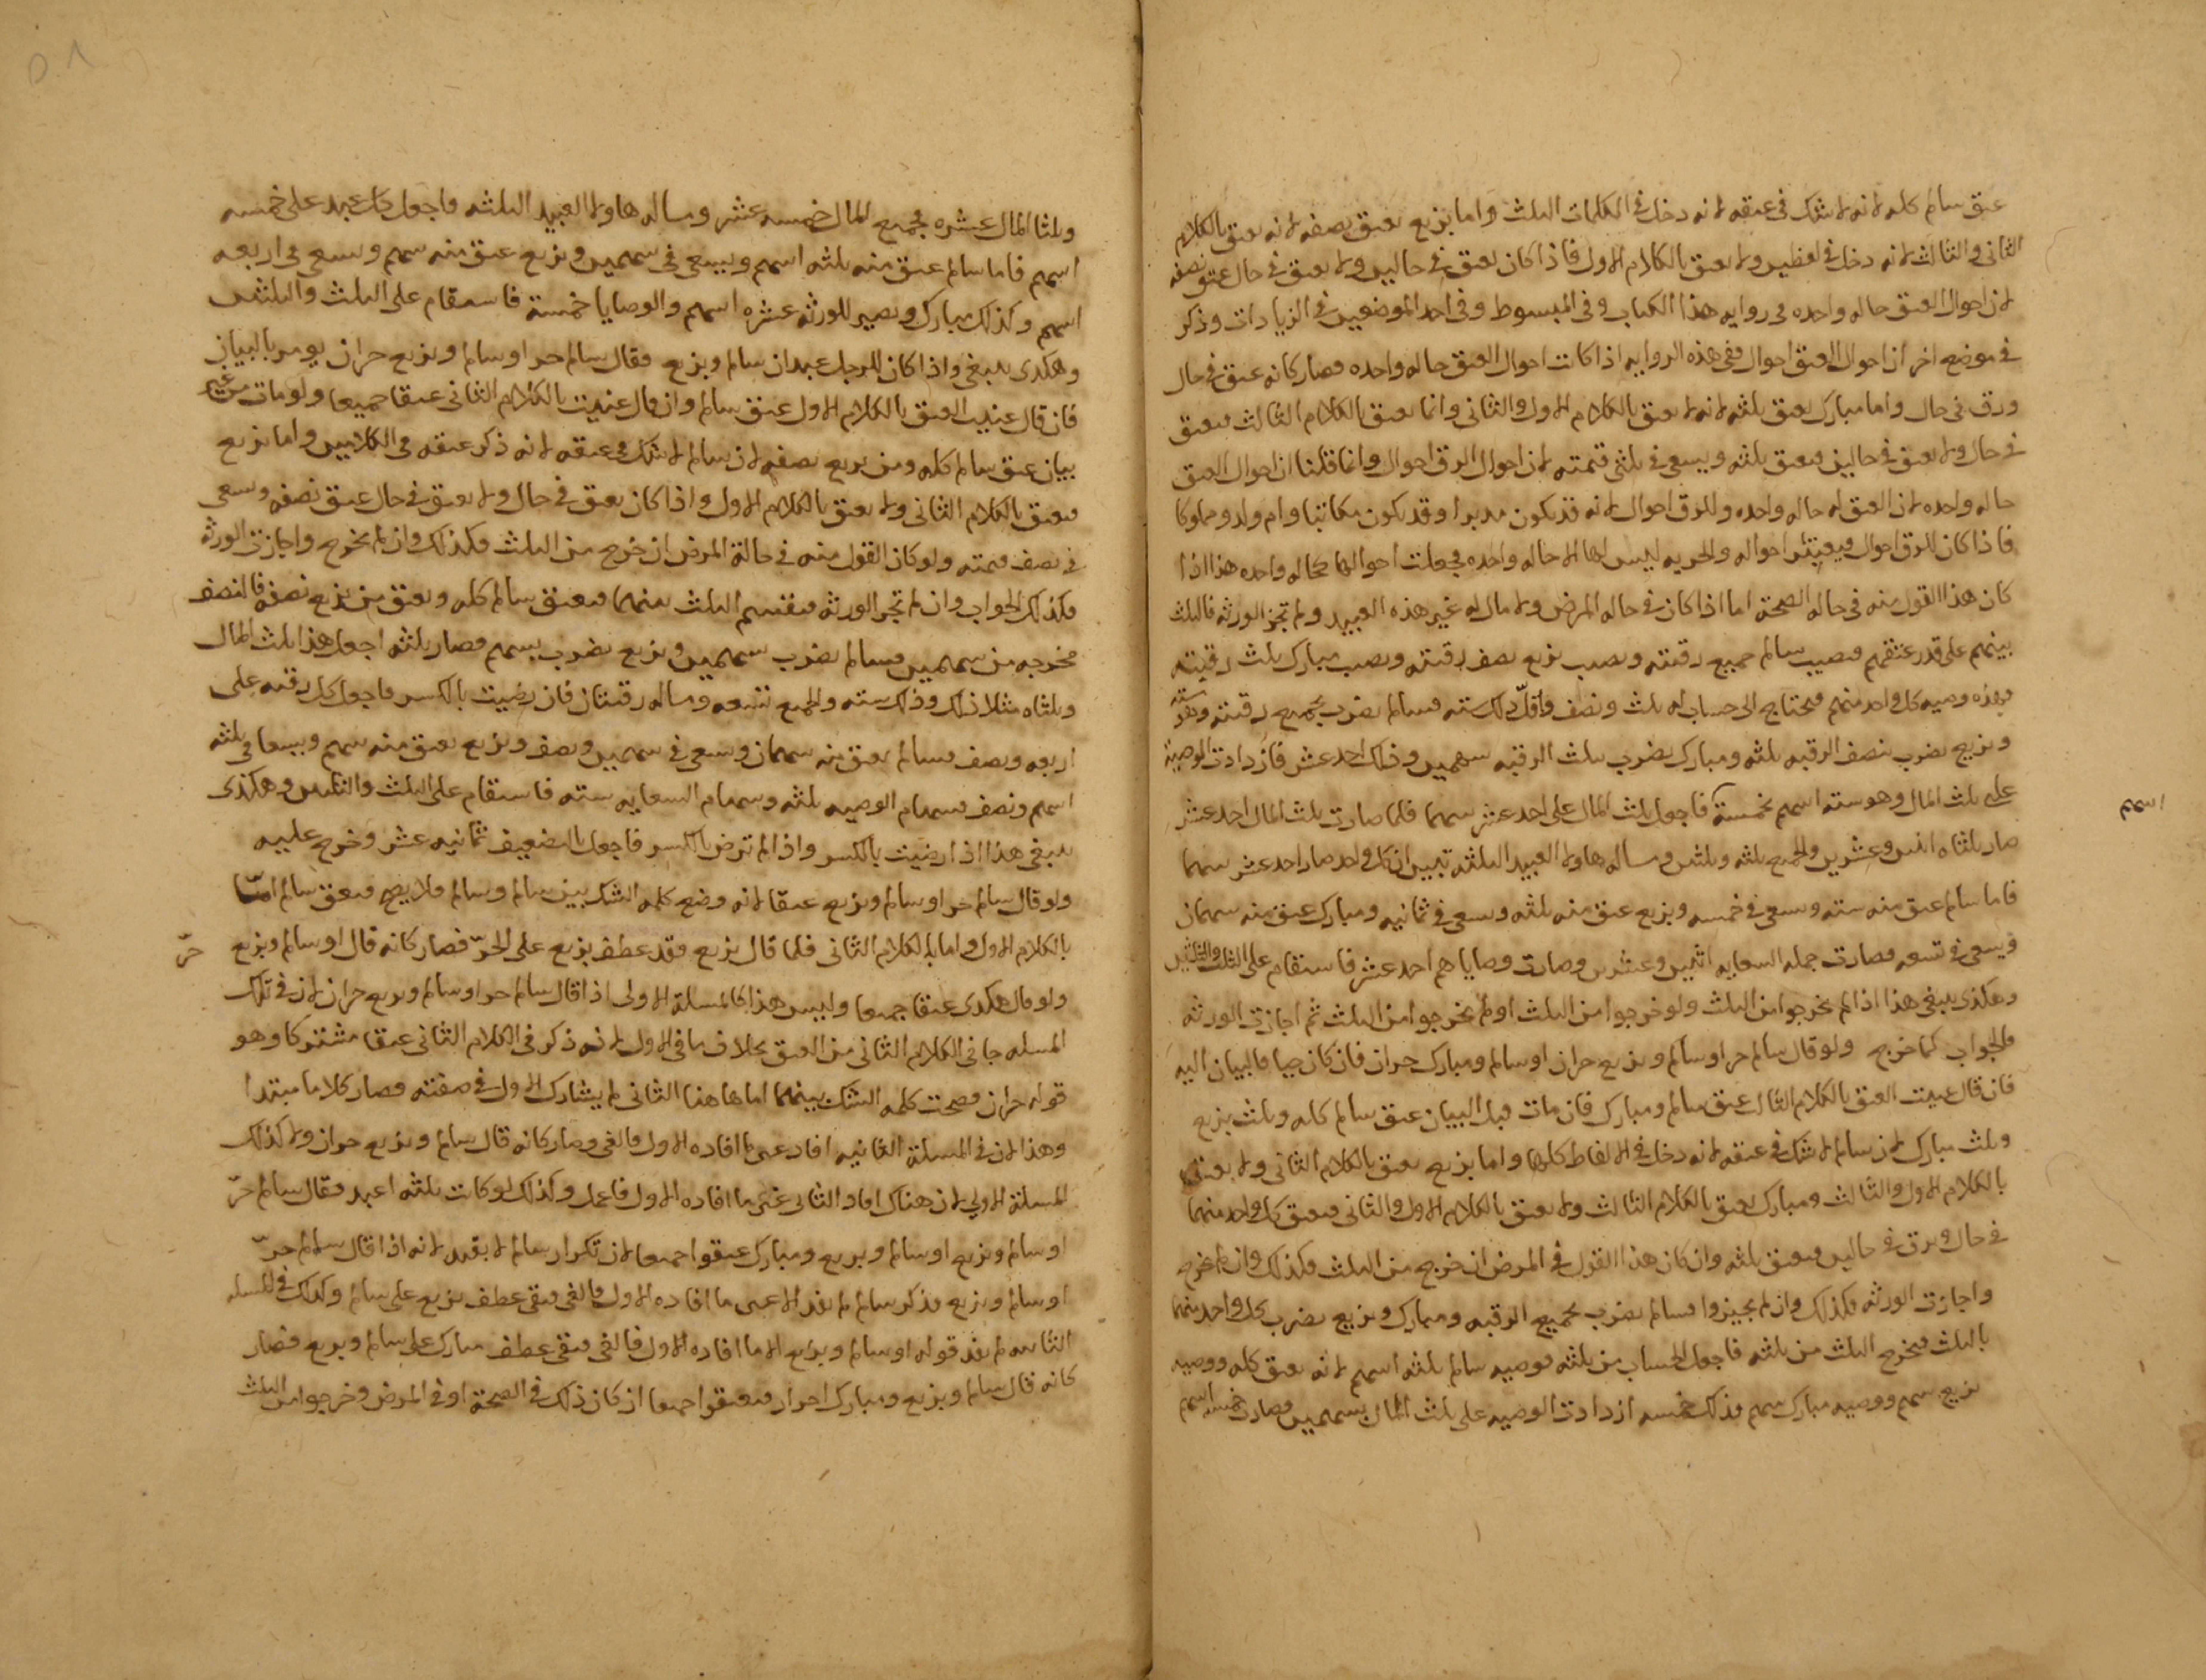 عتق سالم كله لانه لا شك في عتقه لانه دخل في الكلمات الثلث واما بزيع يعتق نصفه لانه يعتق بالكلام
الثاني والثالث لانه دخل في لفظين ولا يعتق بالكلام الاول فاذا كان يعتق في حالين ولا يعتق في حال عتق نصفه
لان احوال العتق حاله واحده في روايه هذا الكتاب وفي المبسوط وفي احد الموضعين في الزيادات وذكر
في موضع اخر ان احوال العتق احوال ففي هذه الروايه اذا كانت احوال العتق حاله واحده فصار كانه عتق في حال
ورق في حال واما مبارك يعتق ثلثه لانه لا يعتق بالكلام الاول والثاني وانما يعتق بالكلام الثالث فيعتق
في حال ولا يعتق في حالين فيعتق ثلثه ويسعى في ثلثي قيمته لان احوال الرق احوال وانما قلنا ان احوال العتق
حاله واحده لان العتق له حاله واحده وللرق احوال لانه قد يكون مدبرا وقد يكون مكاتبا وام ولد ومملوكا
فاذا كان للرق احوال فيعتبر احواله والحريه ليس لها الا حاله واحده فجعلت احوالها كحاله واحده هذا اذا
كان هذا القول منه في حاله الصحة اما اذا كان في حاله المرض ولا مال له غير هذه العبيد ولم تجز الورثه فالثلث
بينهم على قدر عتقهم فنصيب سالم جميع رقبته ونصيب بزيع نصف رقبته ونصيب مبارك ثلث رقبته
فهذه وصيه كل واحد منهم فيحتاج الى حساب له ثلث ونصف واقل ذلك سته فسالم يضرب بجميع رقبته وهو سته
وبزيع يضرب بنصف الرقبه ثلثه ومبارك يضرب بثلث الرقبه سهمين وذلك احد عشر فازدادت الوصية
على ثلث المال وهو سته اسهم بخمسة فاجعل ثلث المال على احد عشر سهما فلما صارت ثلث المال احد عشر
اسهم
صار ثلثاه اثنين وعشرين والجميع ثلثه وثلثين وماله هاولا العبيد الثلثه تبين ان كل واحد صار احد عشر سهما
فاما سالم عتق منه سته وسعى في خمسه وبزيع عتق منه ثلثه وسعى في ثمانيه ومبارك عتق منه سهمان
ويسعى في تسعه فصارت جمله السعايه اثنين وعشرين وصارت وصاياهم احد عشر فاستقام على الثلث والثلثين
وهكذى ينبغي هذا اذا لم يخرجوا من الثلث ولو خرجوا من الثلث او لم يخرجوا من الثلث ثم اجازت الورثه
فالجواب كما خرج ولو قال سالم حر او سالم وبزيع حران او سالم ومبارك حران فان كان حيا فالبيان اليه
فان قال عنيت العتق بالكلام الثالث عتق سالم ومبارك فان مات قبل البيان عتق سالم كله وثلث بزيع
وثلث مبارك لان سالم لا شك في عتقه لانه دخل في الالفاظ كلها واما بزيع يعتق بالكلام الثاني ولا يعتق
بالكلام الاول والثالث ومبارك يعتق بالكلام الثالث ولا يعتق بالكلام الاول والثاني فيعتق كل واحد منهما
في حال ويرق في حالين فيعتق ثلثه وان كان هذا القول في المرض ان خرج من الثلث فكذلك وان لم يخرج
واجازت الورثه فكذلك وان لم يجيزوا فسالم يضرب بجميع الرقبه ومبارك وبزيع يضرب كل واحد منهما
بالثلث فيخرج الثلث من ثلثه فاجعل الحساب من ثلثه فوصيه سالم ثلثه اسهم لانه يعتق كله ووصيه
بزيع سهم ووصيه مبارك سهم فذلك خمسه ازدادت الوصيه على ثلث المال بسهمين فصارت خمسه اسهم
وثلثا المال عشره فجميع المال خمسه عشر وماله هاولا العبيد الثلثه فاجعل كل عبد على خمسه
اسهم فاما سالم عتق منه ثلثه اسهم ويسعى في سهمين وبزيع عتق منه سهم وسعى في اربعه
اسهم وكذلك مبارك ويصير للورثه عشره اسهم والوصايا خمسة فاستقام على الثلث والثلثين
وهكذى ينبغي واذا كان للرجل عبدان سالم وبزيع فقال سالم حر او سالم وبزيع حران يومر بالبيان
فان قال عنيت العتق بالكلام الاول عتق سالم وان قال عنيت بالكلام الثاني عتقا جميعا ولو مات من غير
بيان عتق سالم كله ومن بزيع نصفه لان سالم لا شك في عتقه لانه ذكر عتقه في الكلامين واما بزيع
فيعتق بالكلام الثاني ولا يعتق بالكلام الاول واذا كان يعتق في حال ولا يعتق في حال عتق نصفه وسعى
في نصف قيمته ولو كان القول منه في حالة المرض ان خرج من الثلث فكذلك وان لم يخرج واجازت الورثه
فكذلك الجواب وان لم تجز الورثه فيقسم الثلث بينهما فيعتق سالم كله ويعتق من بزيع نصفه فالنصف
مخرجه من سهمين فسالم يضرب بسهمين وبزيع يضرب بسهم فصار ثلثه اجعل هذا ثلث المال
وثلثاه مثلا ذلك وذلك سته والجميع تسعه وماله رقبتان فان رضيت بالكسر فاجعل كل رقبه على
اربعه ونصف فسالم يعتق منه سهمان وسعى في سهمين ونصف وبزيع يعتق منه سهم ويسعا في ثلثه
اسهم ونصف فسهام الوصيه ثلثه وسهام السعايه سته فاستقام على الثلث والثلثين وهكذى
ينبغي هذا اذا رضيت بالكسر واذا لم ترض بالكسر فاجعل بالضعيف ثمانيه عشر وخرج عليه
ولو قال سالم حر او سالم وبزيع عتقا لانه وضع كلمه الشك بين سالم وسالم فلا يصح فيعتق سالم اما
بالكلام الاول واما بالكلام الثاني فلما قال بزيع فقد عطف بزيع على الحر فصار كانه قال او سالم وبزيع
حر
ولو قال هكذى عتقا جميعا وليس هذا كالمسلة الاولى اذا قال سالم حر او سالم وبزيع حران لان في تلك
المسله جاني الكلام الثاني من العتق بخلاف ما في الاول لانه ذكر في الكلام الثاني عتقا مشتركا وهو
قوله حران فصحت كلمه الشك بينهما اما هاهنا الثاني لم يشارك الاول في صفته فصار كلاما مبتدا
وهذا لان في المسلة الثانيه افاد عين ما افاده الاول فالغى وصار كانه قال سالم وبزيع حران ولا كذلك
المسلة الاولى لان هناك افاد الثاني غير ما افاده الاول فاعمل وكذلك لو كانت ثلثه اعبد فقال سالم حر
او سالم وبزيع او سالم وبزيع ومبارك عتقوا جميعا لان تكرار سالم لا يفيد لانه اذا قال سالم حر
او سالم وبزيع فذكر سالم لم يفد الا عين ما افاده الاول فالغى فبقي عطف بزيع على سالم وكذلك في المسله
الثانيه لم يفد قوله او سالم وبزيع الا ما افاده الاول فالغى فبقي عطف مبارك على سالم وبزيع فصار
كانه قال سالم وبزيع ومبارك احرار فيعتقوا جميعا ان كان ذلك في الصحة او في المرض وخرجوا من الثلث